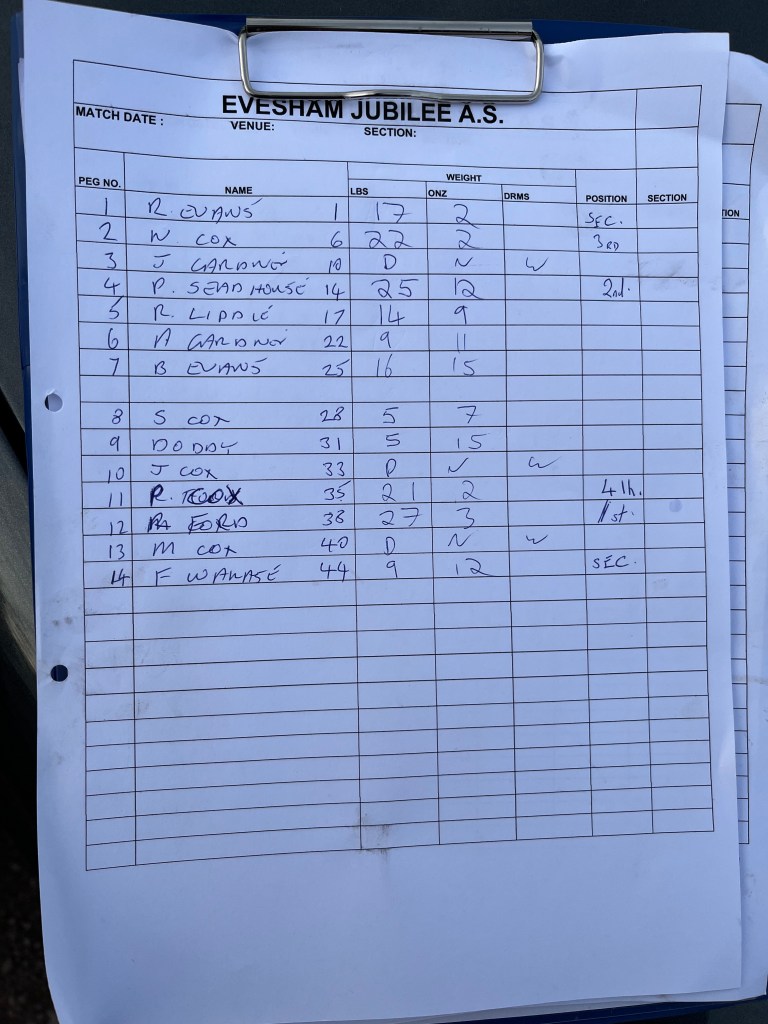 EVESHAM JUBILEE A.S.
MATCH DATE : VENUE: SECTION:
WEIGHT
PEG NO. NAME LBS ONZ DRMS POSITION SECTION
1 R. EVANS 1 17 2 SEC.
2 W COX 6 22 2 3RD
3 J GARDNER 10 D N W
4 P. SEADHOUSE 14 25 12 2nd.
5 R. LIDDLE 17 14 9
6 A GARDNER 22 9 11
7 B EVANS 25 16 15
8 S COX 28 5 7
9 DODDY 31 5 15
10 J COX 33 D N W
11 R. 35 21 2 4th.
12 FORD 38 27 3 1st.
13 M COX 40 D N W
14 F 44 9 12 SEC.
TION